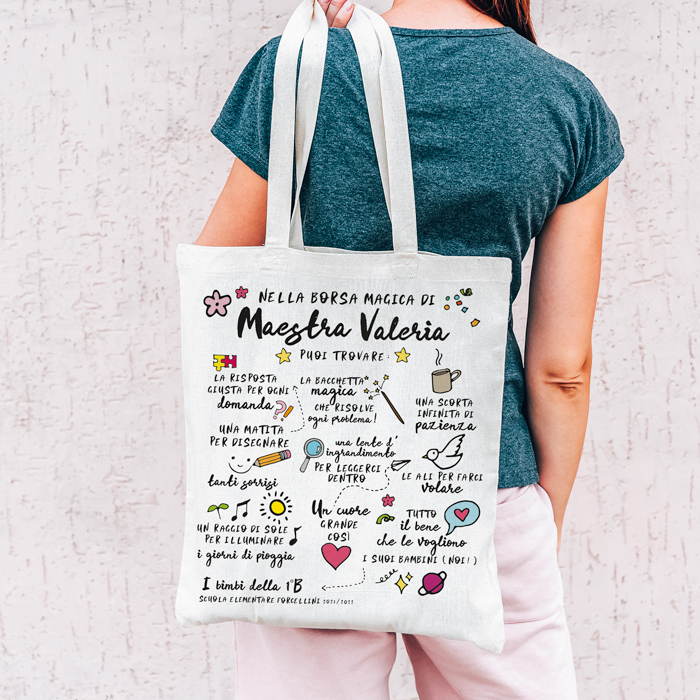 NELLA BORSA MAGICA DI
Maestra Valeria
PUOI TROVARE:
LA RISPOSTA
GIUSTA PER OGNI
domanda
LA BACCHETTA
magica
CHE RISOLVE
ogni problema!
UNA SCORTA
INFINITA DI
pazienza
UNA MATITA
PER DISEGNARE
tanti sorrisi
una lente d'
ingrandimento
PER LEGGERCI
DENTRO
LE ALI PER FARCI
volare
UN RAGGIO DI SOLE
PER ILLUMINARE
i giorni di pioggia
Un cuore
GRANDE
COSÌ
TUTTO
il bene
che le vogliono
I SUOI BAMBINI (NOI!)
I bimbi della 1°B
SCUOLA ELEMENTARE FORCELLINI 2021/2022